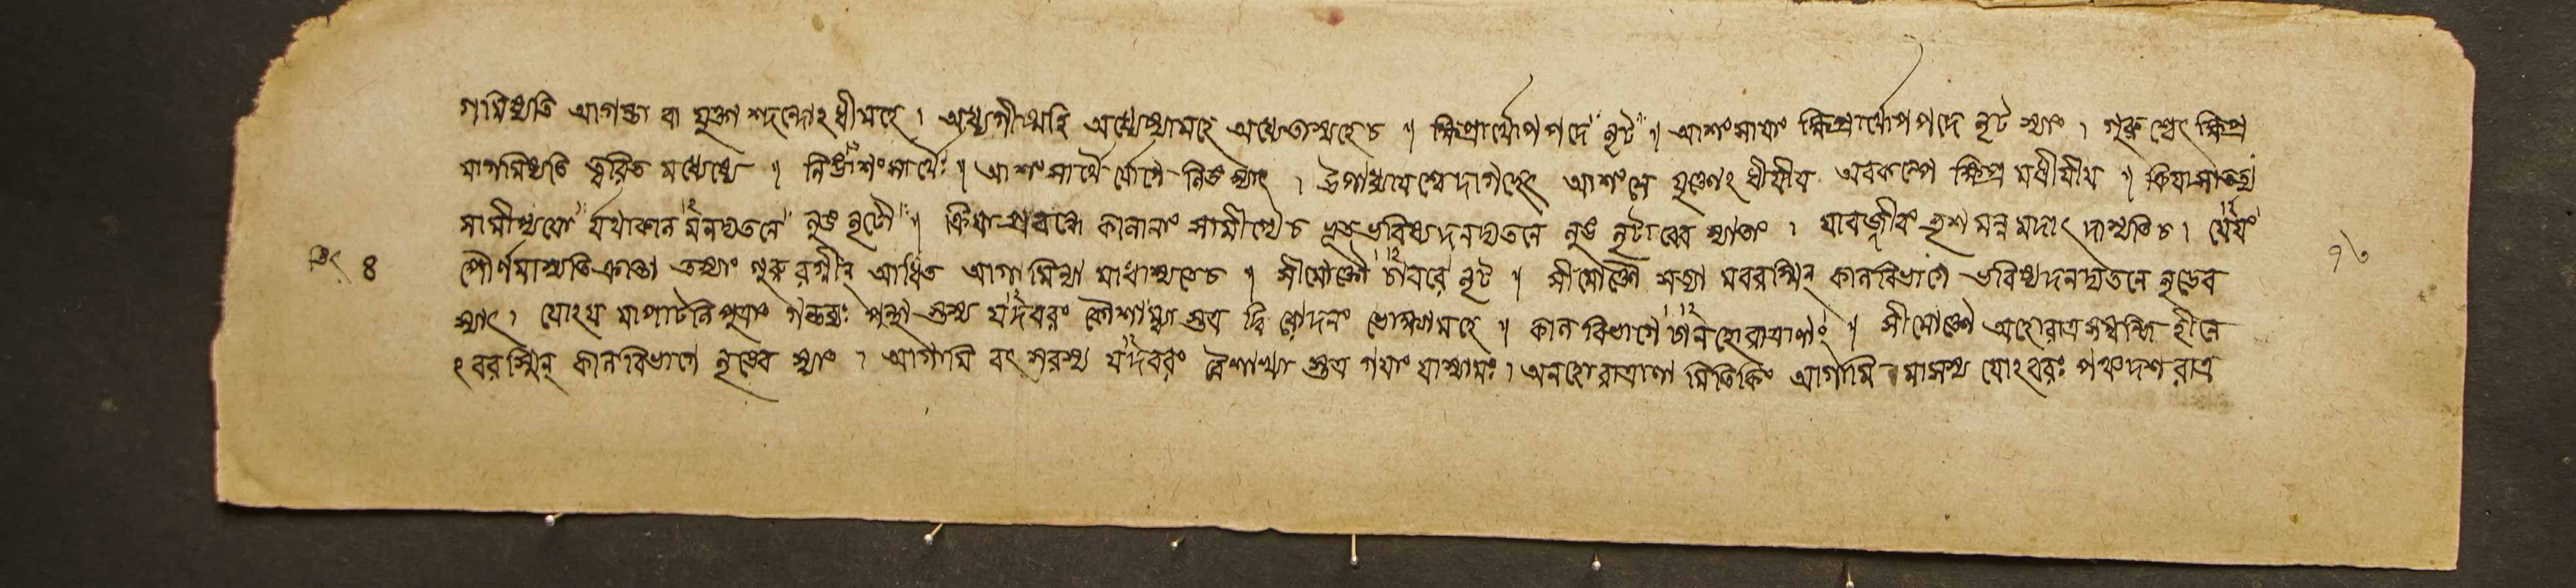 গমিষ্যতি আগন্তা বা যুক্তা শ্ছন্দোঽধীমহে । অধ্যগীষ্মহি অধ্যেষ্যামহে অধ্যেতাস্মহে চ ॥ ক্ষিপ্রার্থোপপদে লৃট্ ॥ আশংসায়াং ক্ষিপ্রার্থোপপদে লৃট্ স্যাৎ । গুরু শ্চেৎ ক্ষিপ্র
মাগমিষ্যতি ত্বরিত মধ্যেষ্যে ॥ লিঙাশংসার্থে ॥ আশংসার্থে র্যোগে লিঙ স্যাৎ । উপাধ্যায়শ্চেদাগচ্ছেৎ আশংসে যুক্তোঽধীয়ীয় অবকল্পে ক্ষিপ্র মধীয়ীয় ॥ ক্রিয়াসাতত্য
সামীপ্যয়ো র্যথাকাল মনদ্যতনে লুঙ লৃটৌ ॥ ক্রিয়াপ্রবন্ধে কালানাং সামীপ্যে চ ভূতভবিষ্যদনদ্যতনে লুঙ লৃটাবেব স্যাতাং । যাবজ্জীবং ভৃশ মন্ন মদাৎ দাস্যতি চ । যেয়ং
পৌর্ণমাস্যতিক্রান্তা তস্যাং গুরু রগ্নীন্ আধিত আগামিন্যা মাধাস্যতে চ ॥ সীমোক্তৌ চাবরে লৃট্ ॥ সীমোক্তৌ সত্যা মবরস্মিন্ কালবিভাগে ভবিষ্যদনদ্যতনে লৃডেব
স্যাৎ । যোঽয় মাপাটলিপুত্রাং গন্তব্যঃ পন্থা স্তস্য যদবরং কৌশাম্ব্যা স্তত্র দ্বি রোদনং ভোক্ষ্যামহে ॥ কালবিভাগে চানহোরাত্রাণাং ॥ সীমোক্তৌ অহোরাত্রসম্বন্ধি হীনে
ঽবরস্মিন্ কালবিভাগে লৃডেব স্যাৎ । আগামি বৎসরস্য যদবরং বৈশাখ্যা স্তত্র গয়াং যাস্যামঃ । অনহোরাত্রাণা মিতি কিং আগামি মাসস্য যোঽবরঃ পঞ্চদশ রাত্র
৪
১৬